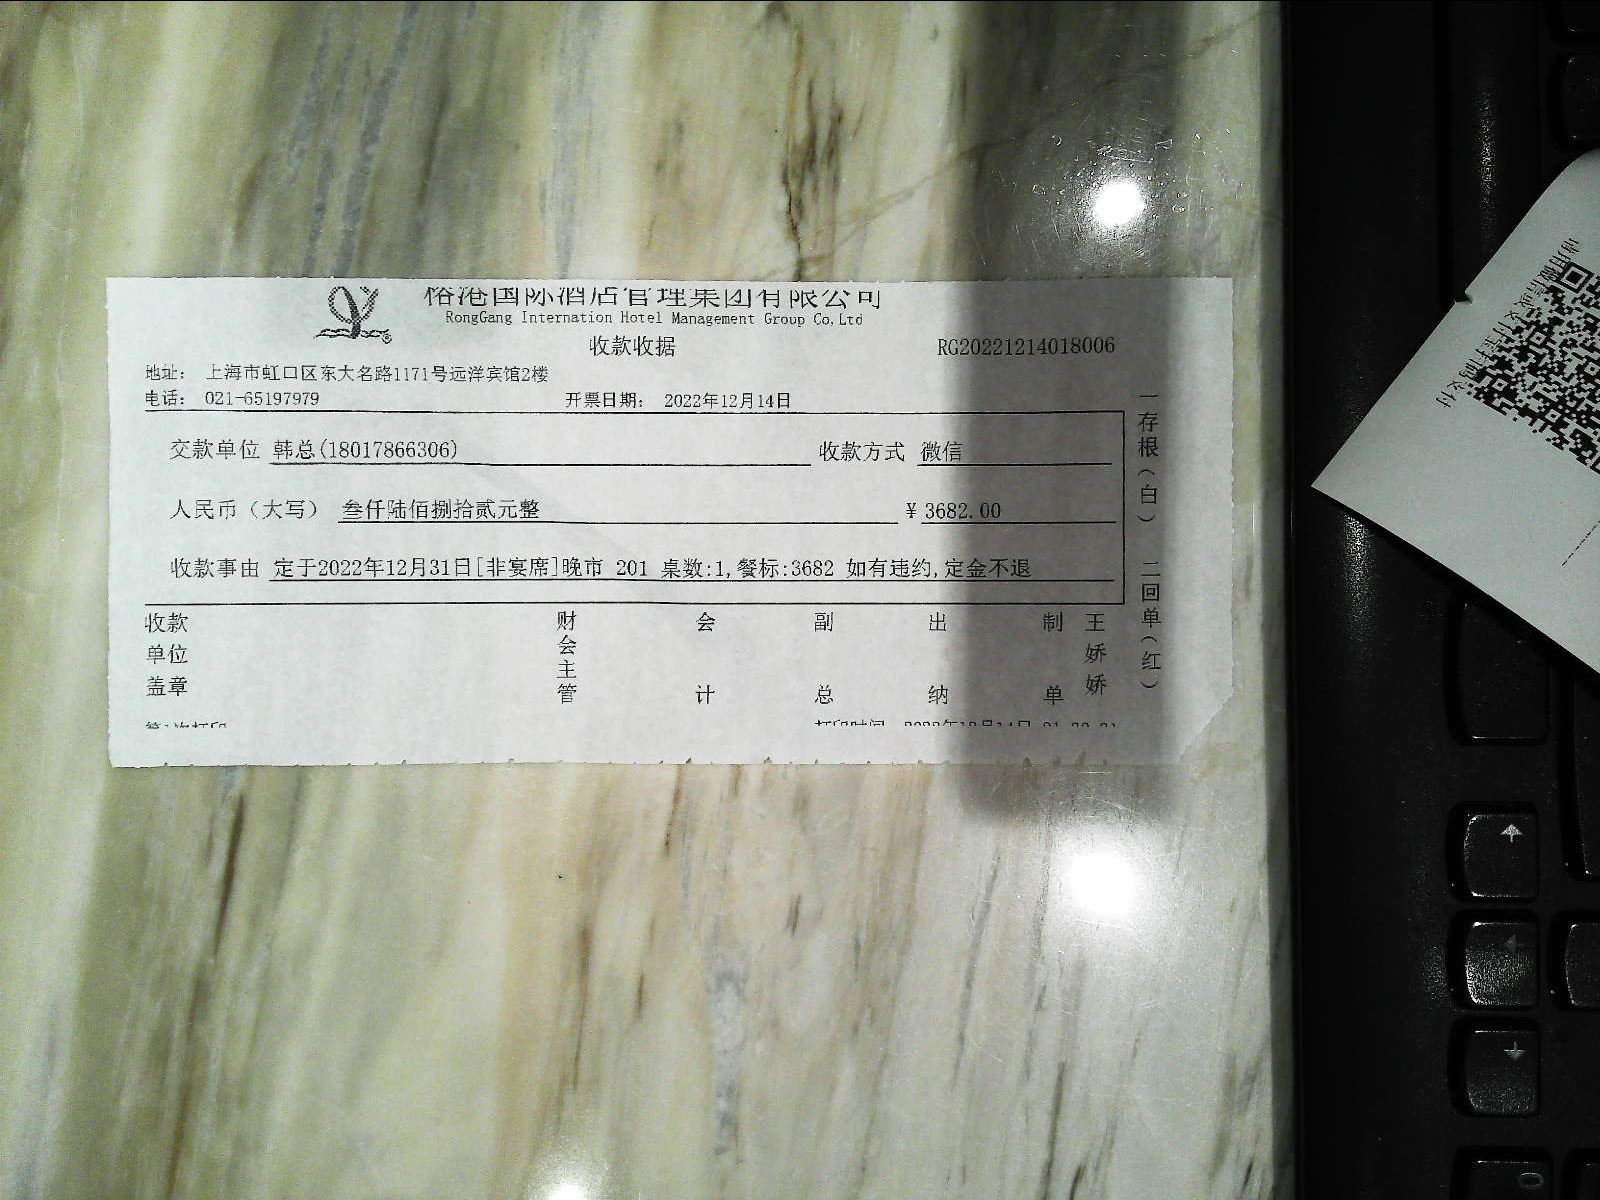 榕港国际酒店管理集团有限公司
RongGang Internation Hotel Management Group Co,Ltd
收款收据
RG20221214018006
地址： 上海市虹口区东大名路1171号远洋宾馆2楼
电话： 021-65197979
开票日期： 2022年12月14日
交款单位 韩总(18017866306) 收款方式 微信
人民币（大写） 叁仟陆佰捌拾贰元整 ¥3682.00
收款事由 定于2022年12月31日[非宴席]晚市 201 桌数:1,餐标:3682 如有违约,定金不退
一存根（白） 二回单（红）
收款单位盖章
财会主管
会计
副总
出纳
制单
王娇娇
第1次打印
打印时间 2022年12月14日
请用微信或支付宝扫码支付